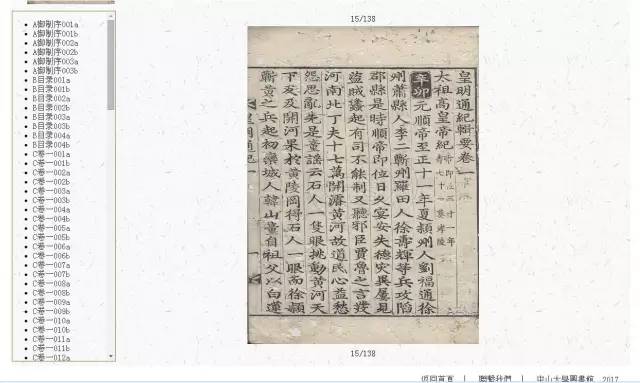 A御制序001a
A御制序001b
A御制序002a
A御制序002b
A御制序003a
A御制序003b
B目录001a
B目录001b
B目录002a
B目录002b
B目录003a
B目录003b
B目录004a
B目录004b
C卷一001a
C卷一001b
C卷一002a
C卷一002b
C卷一003a
C卷一003b
C卷一004a
C卷一004b
C卷一005a
C卷一005b
C卷一006a
C卷一006b
C卷一007a
C卷一007b
C卷一008a
C卷一008b
C卷一009a
C卷一009b
C卷一010a
C卷一010b
C卷一011a
C卷一011b
C卷一012a
15/138
皇明通紀輯要卷一
太祖高皇帝紀帝即位三十一年壽七十一葬孝陵
辛卯元順帝至正十一年夏潁州人劉福通徐
州蕭縣人李二蘄州羅田人徐壽輝等兵攻陷
郡縣是時順帝即位日久宴安失德灾異屢見
盜賊蠭起有司不能制又聽邪臣賈魯之言發
河南北丁夫十七萬開濬黃河故道民心益愁
怨思亂先是童謠云石人一隻眼挑動黃河天
下反及開河果於黃陵岡得石人一眼而徐潁
蘄黃之兵起初欒城人韓山童自祖父以白蓮
皇明通紀 一
15/138
返回首頁 | 聯繫我們 | 中山大學圖書館 2017